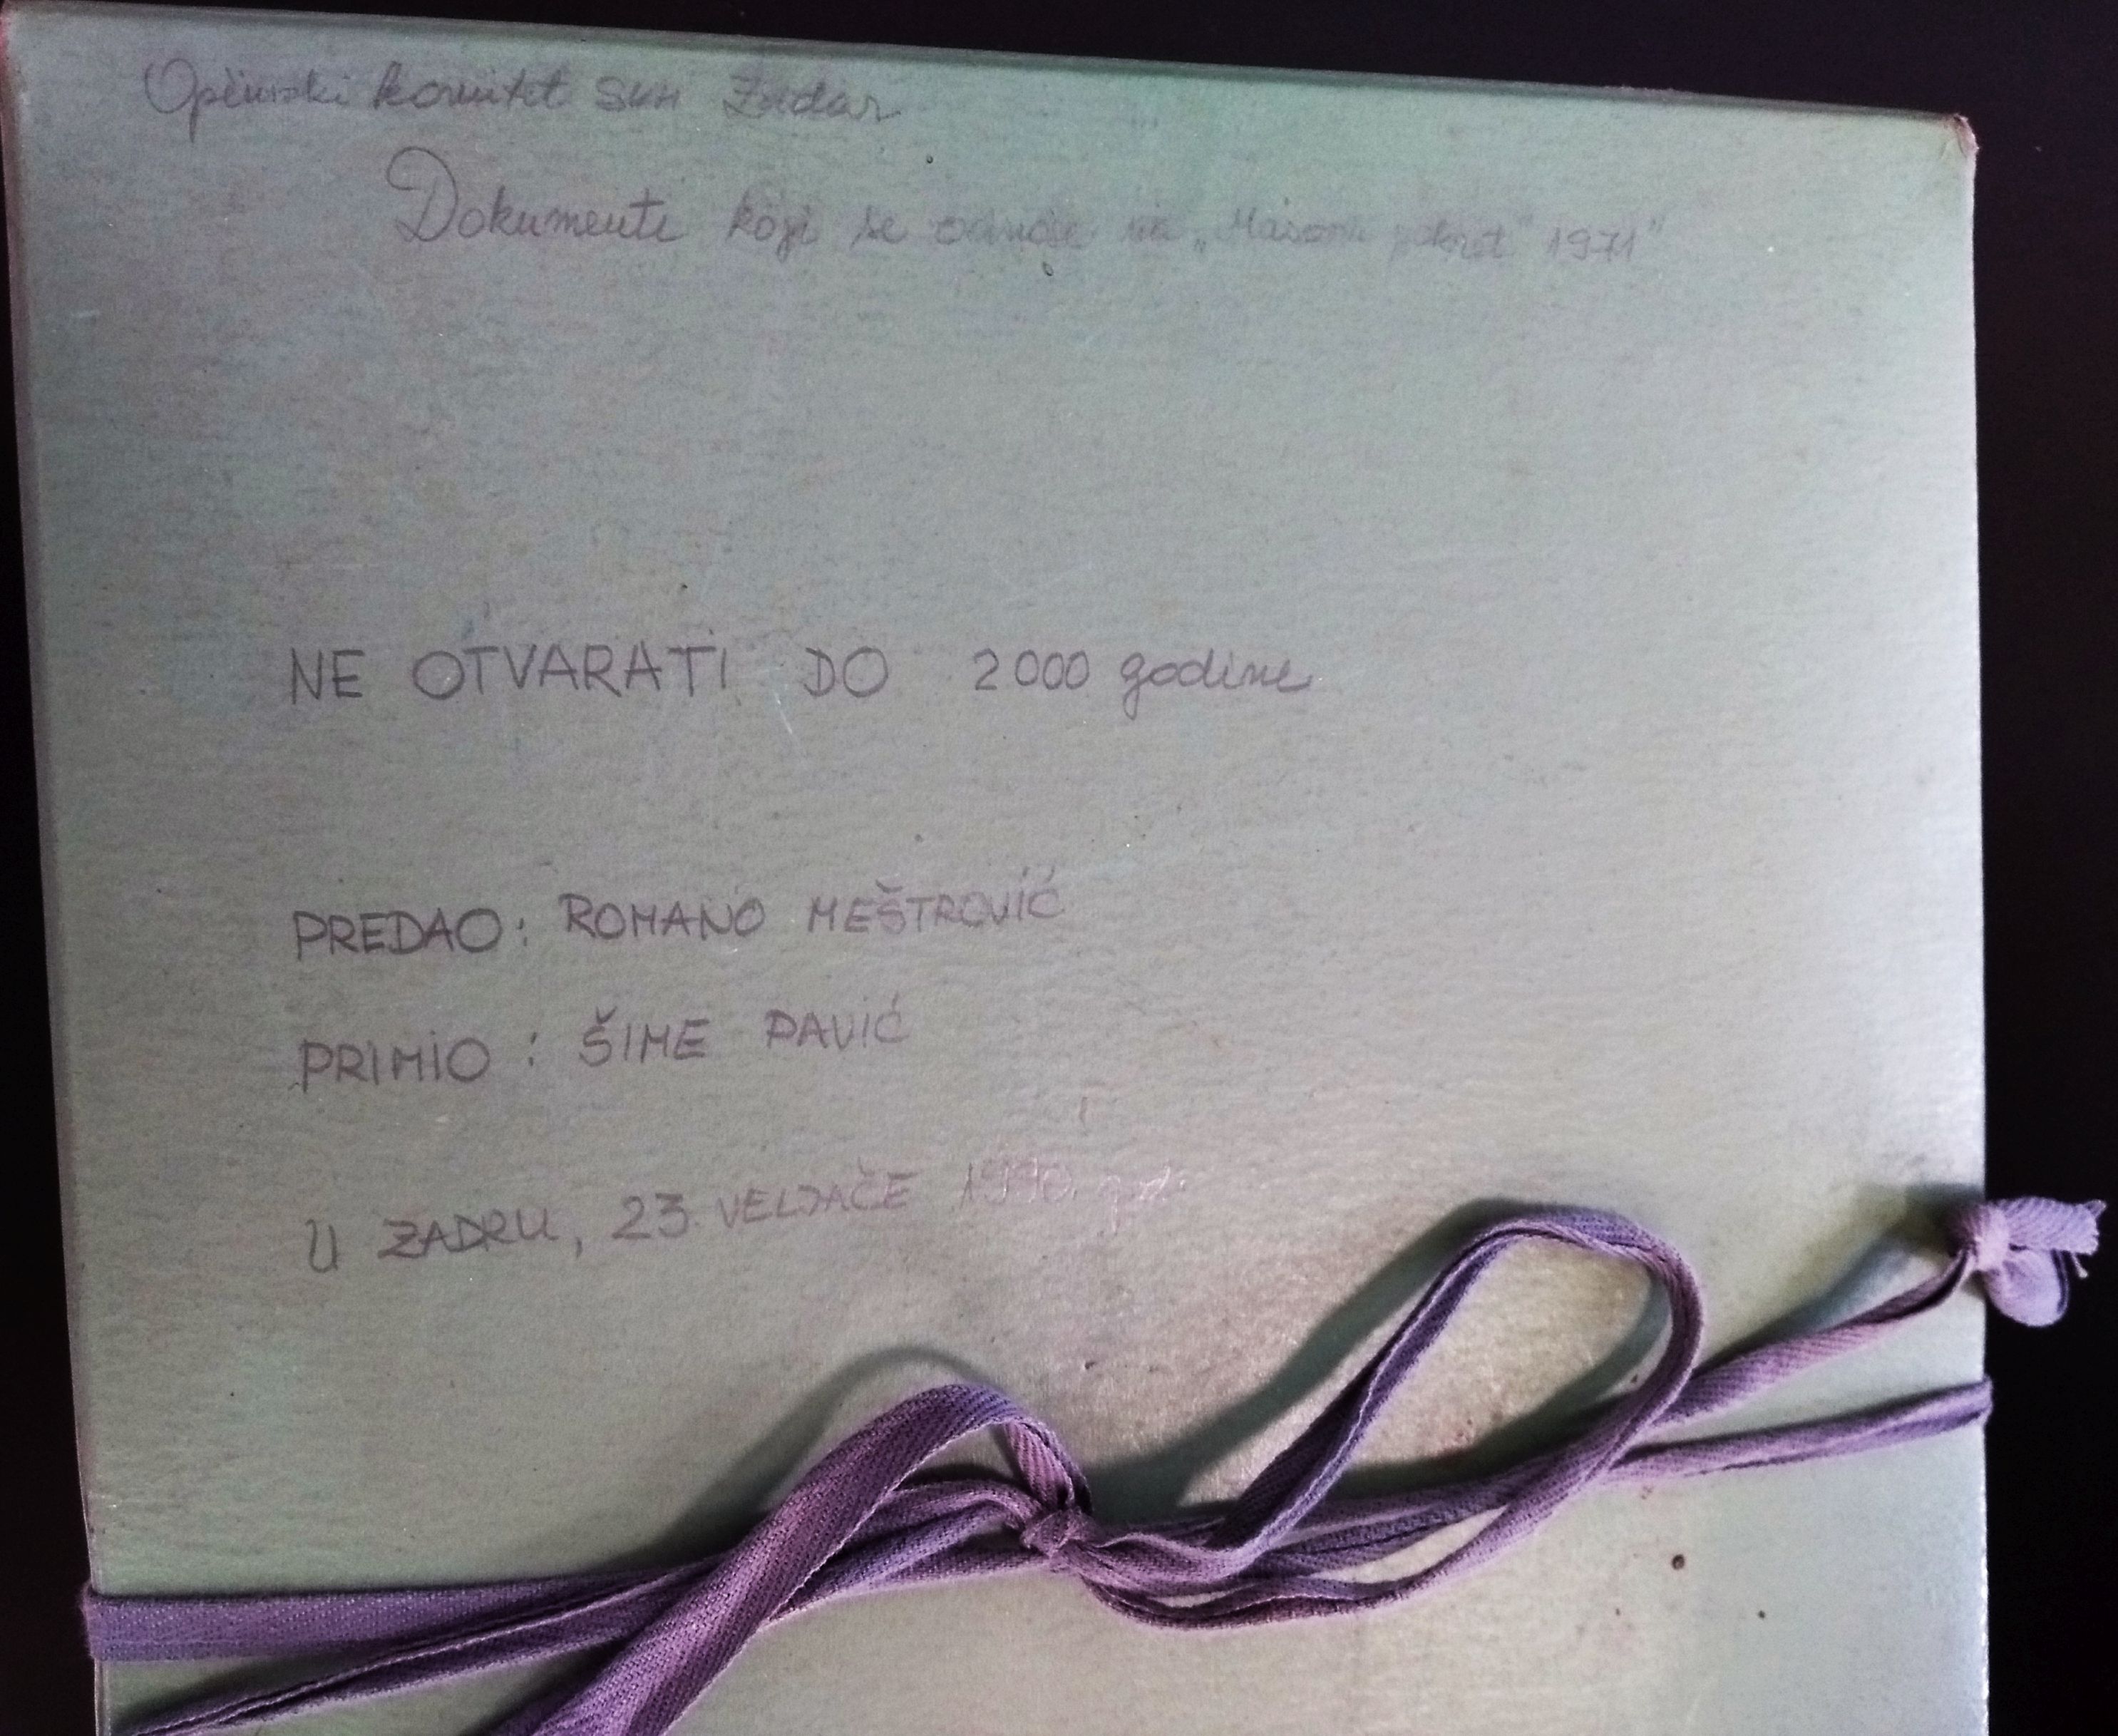 Općinski komitet SKH Zadar
Dokumenti koji se odnose na „Masovni pokret" 1971"
NE OTVARATI DO 2000 godine
PREDAO: ROMANO MEŠTROVIĆ
PRIMIO: ŠIME PAVIĆ
U ZADRU, 23 VELJAČE 1990. god.